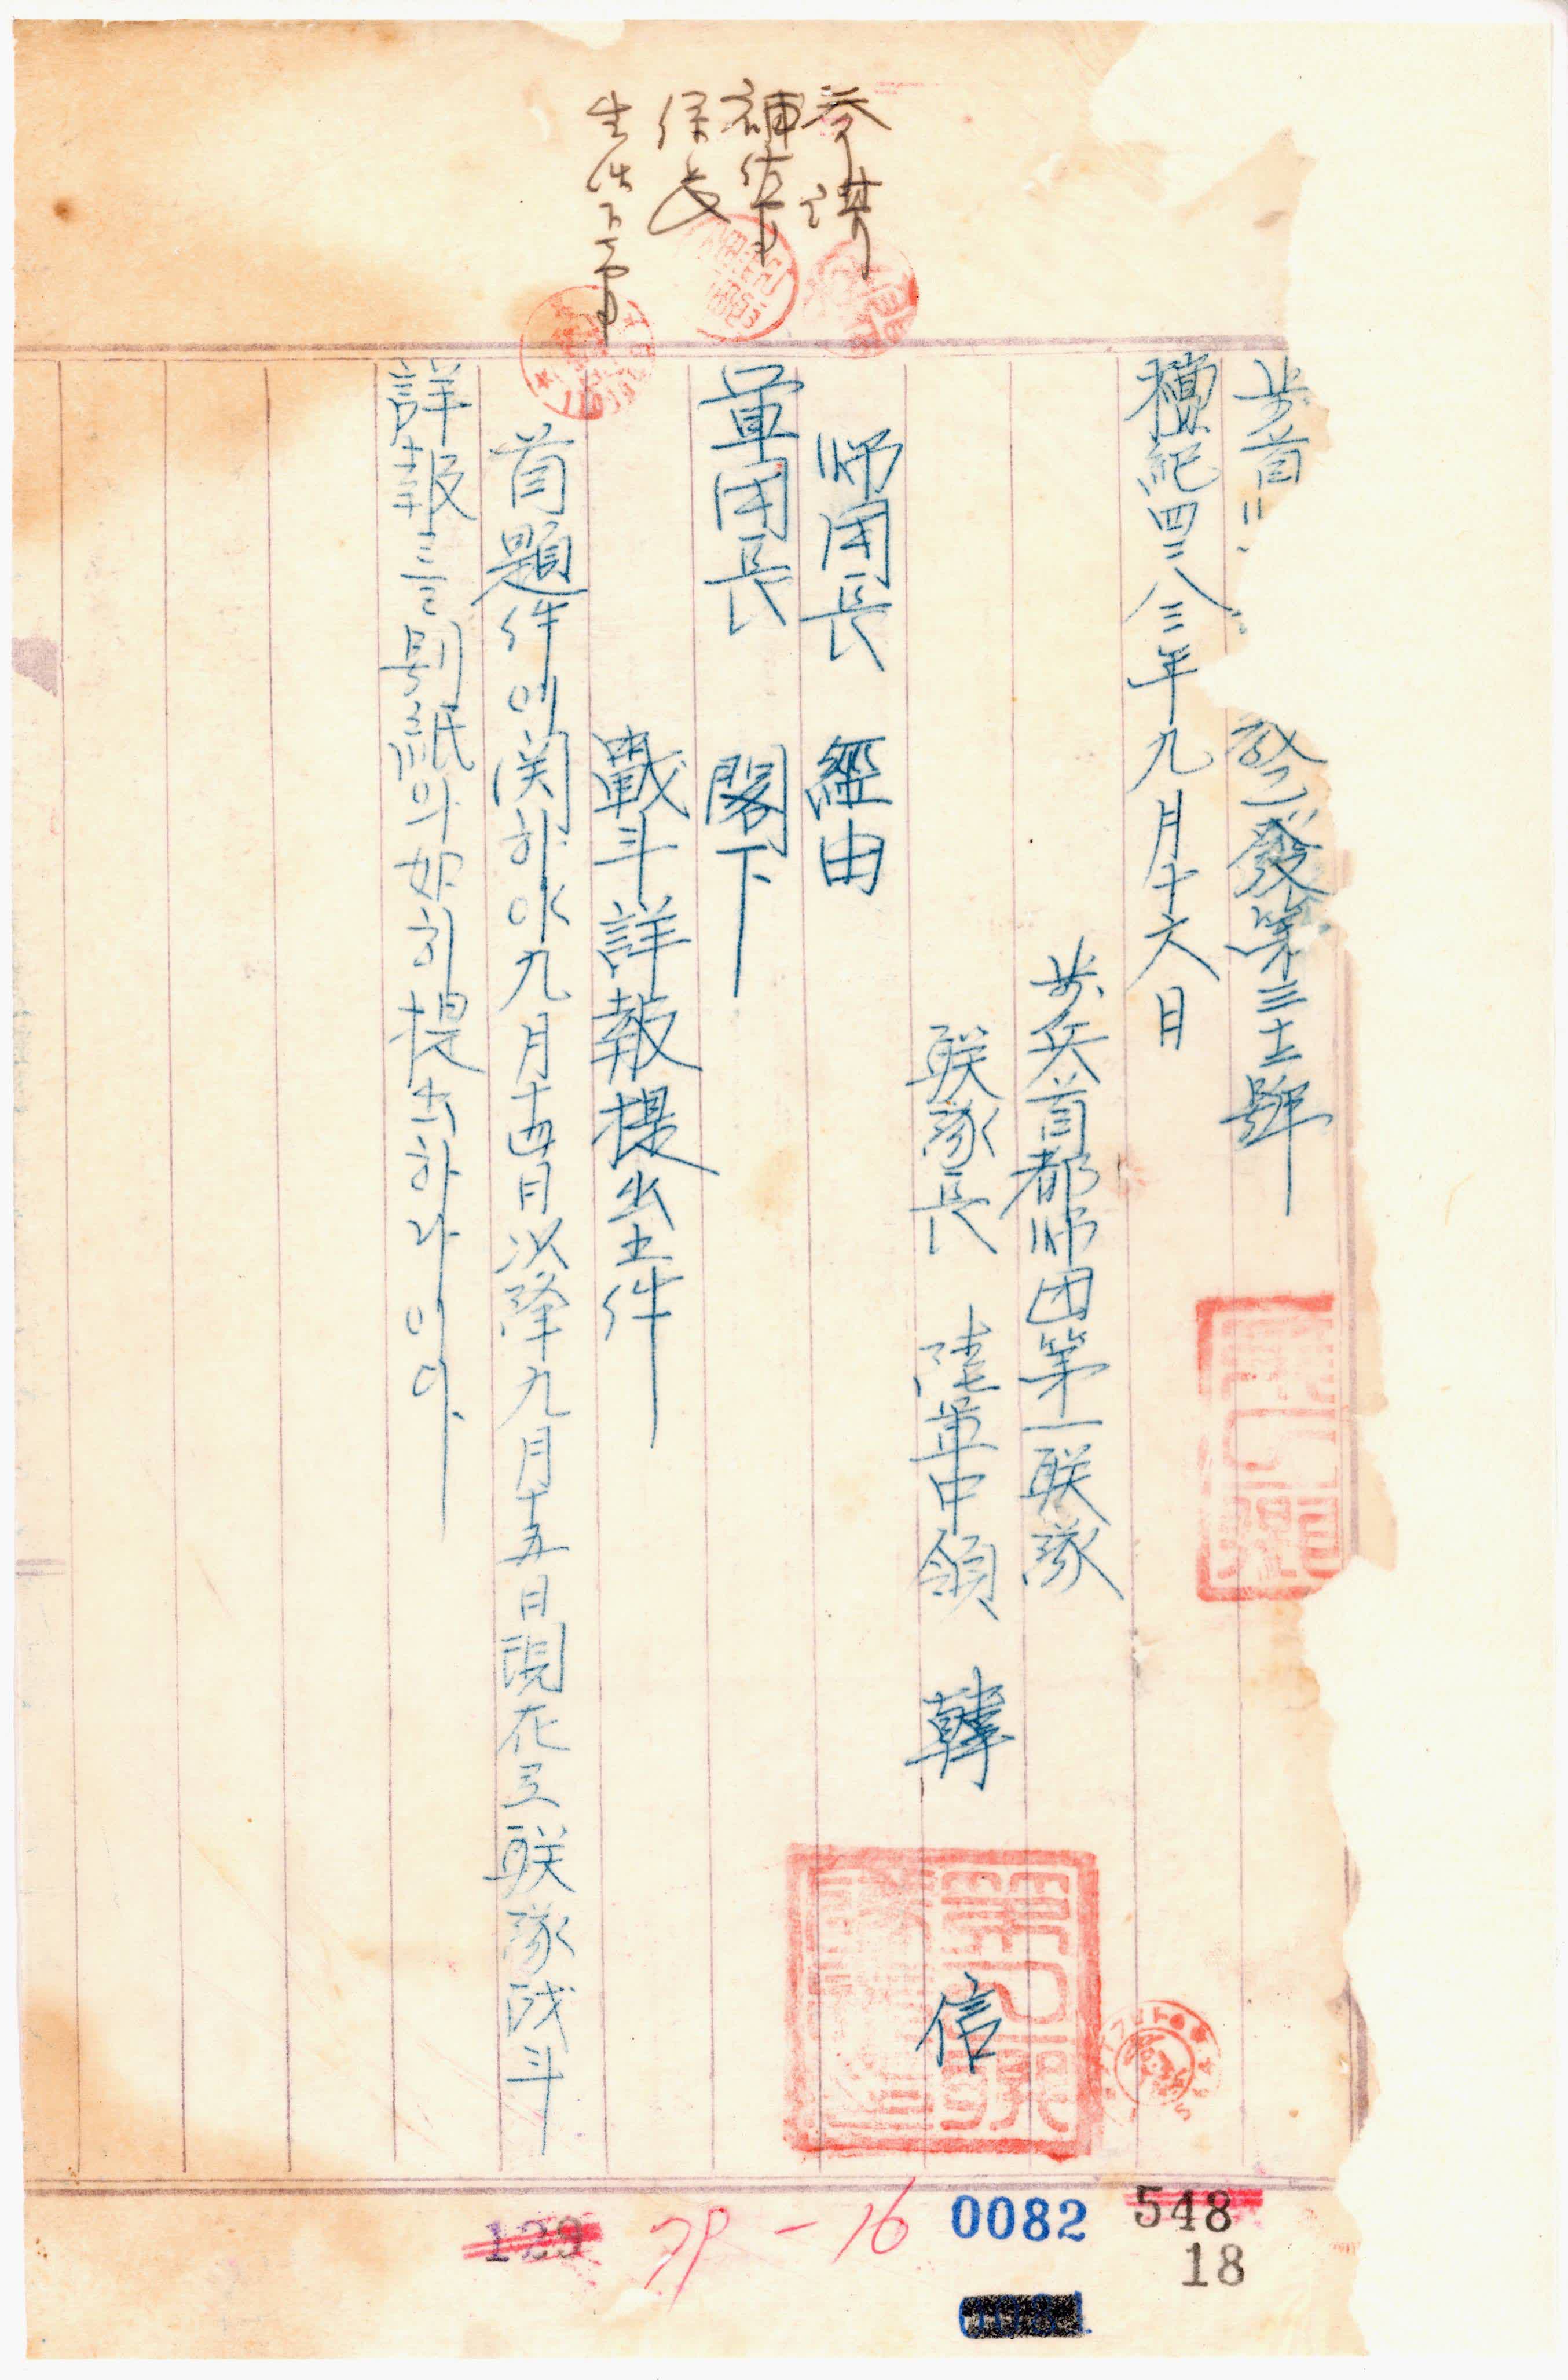 步首
發第三十三號
檀紀四二八三年九月十六日
步兵首都師団第一联隊
联隊長 陸軍中領 韓 信
師団長 經由
軍団長 閣下
戰斗詳報提出件
首題件에関하야九月十四日以降九月十五日現在로联隊战斗
詳報를別紙와如히提出하나이다.
参謀
補佐官
係長
548
18
0082
79-16
129